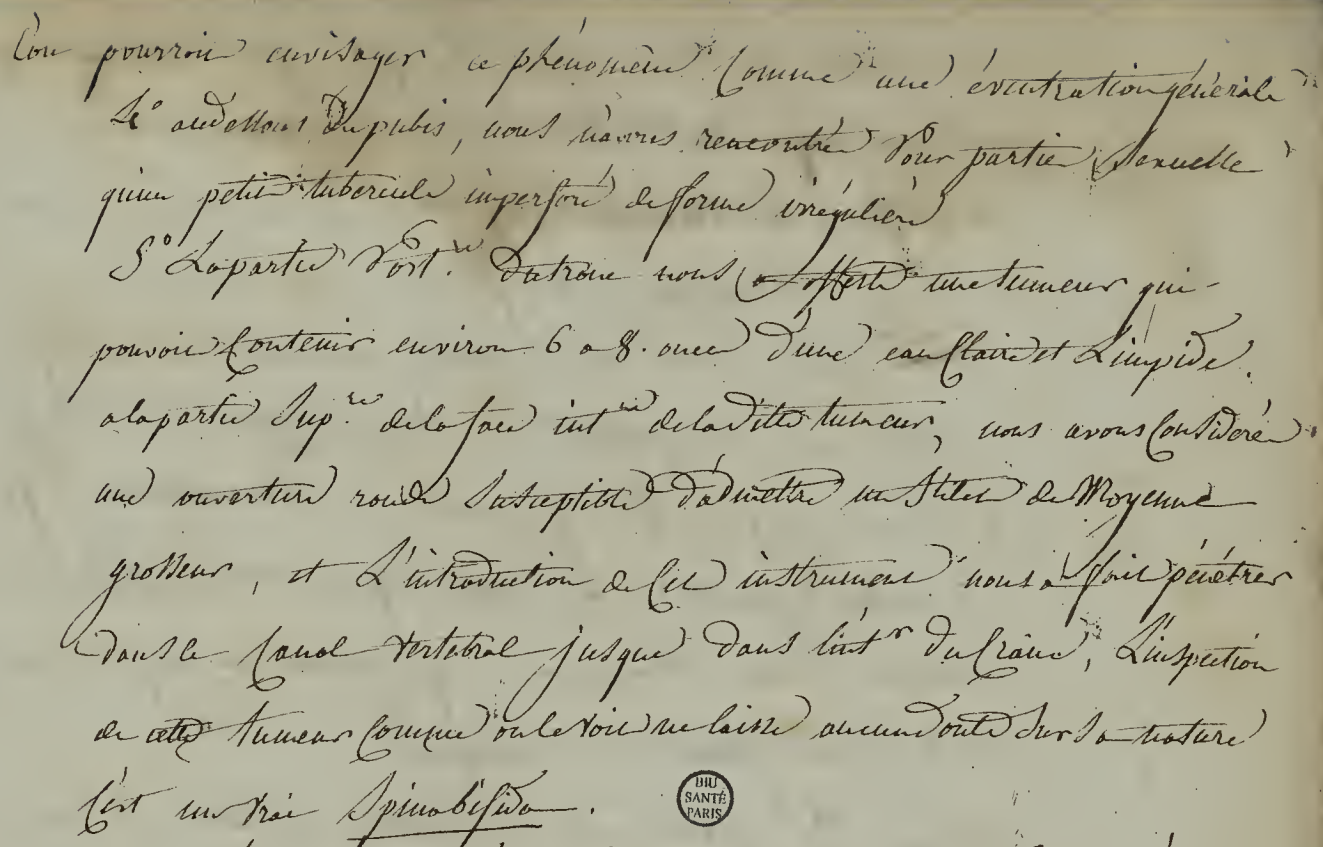 L'on pourroit envisager ce phénomène comme une éventration générale
4° audessous du pubis, nous n'avons rencontré pour partie sexuelle
qu'un petit tubercule imperforé de forme irrégulière
5° La partie post.re du tronc nous a offert une tumeur qui
pouvoit contenir environ 6 a 8. onces d'une eau claire et Limpide.
a la partie Sup.re de la face int.re de la ditte tumeur, nous avons considéré
une ouverture ronde susceptible d'admettre un stilet de Moyenne
grosseur, et L'introduction de cet instrument nous a fait pénétrer
dans le canal vertebral jusque dans l'int.r du Crâne, L'inspection
de cette tumeur comme on le voit ne laisse aucun doute sur sa nature
C'est un vrai Spinabifida.
BIU
SANTÉ
PARIS